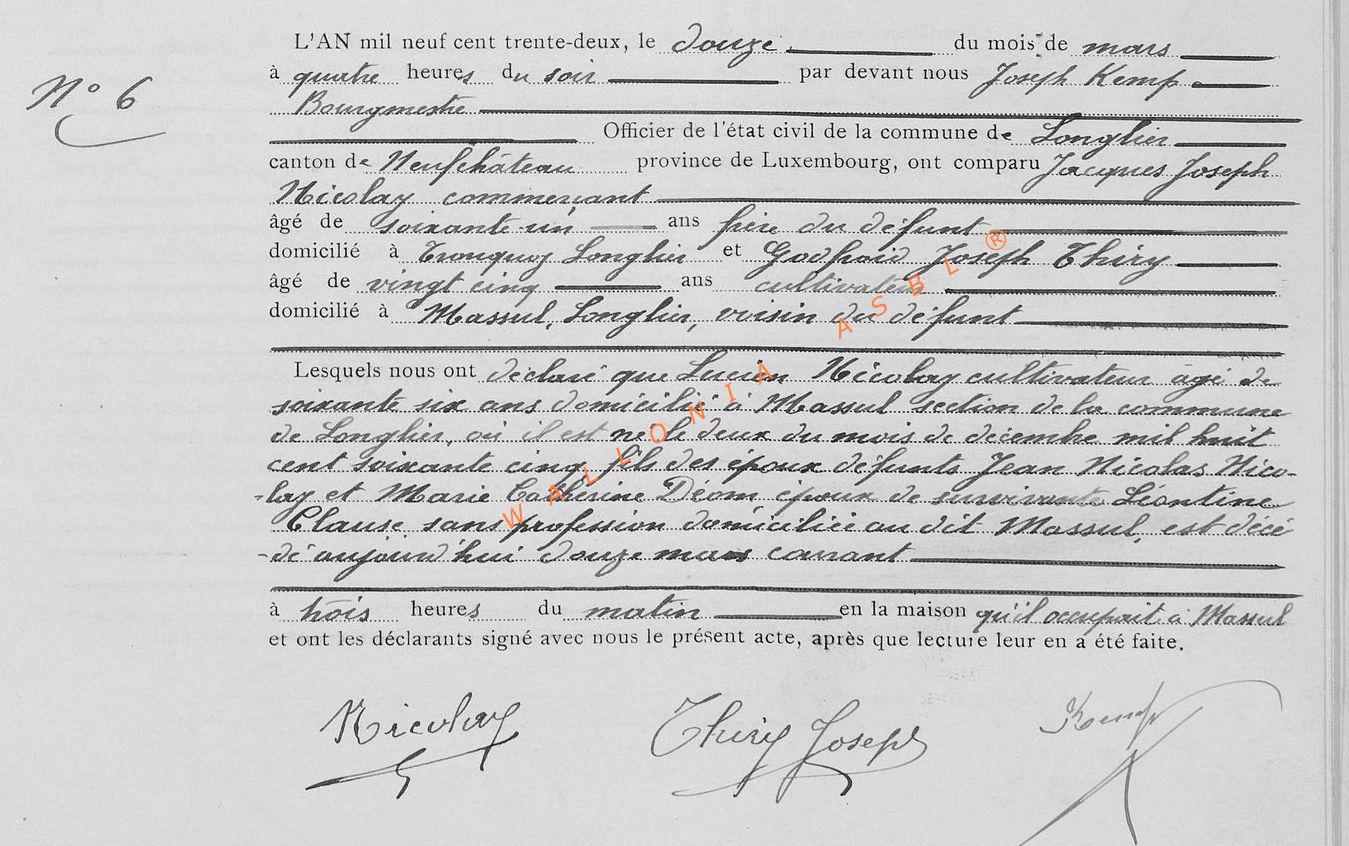 L'AN mil neuf cent trente-deux, le douze du mois de mars
à quatre heures du soir par devant nous Joseph Kemp
N° 6
Bourgmestre
Officier de l'état civil de la commune de Longlier
canton de Neufchâteau province de Luxembourg, ont comparu Jacques Joseph
Nicolay commerçant
âgé de soixante-un ans frère du défunt
domicilié à Tronquoy Longlier et Godfroid Joseph Thiry
âgé de vingt cinq ans cultivateur
domicilié à Massul, Longlier, voisin du défunt
Lesquels nous ont déclaré que Lucien Nicolay cultivateur âgé de
soixante six ans domicilié à Massul section de la commune
de Longlier, où il est né le deux du mois de décembre mil huit
cent soixante cinq fils des époux défunts Jean Nicolas Nico-
-lay et Marie Catherine Déom époux de survivante Léontine
Clause sans profession domiciliée au dit Massul, est décé
-dé aujourd'hui douze mars courant
à trois heures du matin en la maison qu'il occupait à Massul
et ont les déclarants signé avec nous le présent acte, après que lecture leur en a été faite.
Nicolay Thiry Joseph Kemp
WALLONIA ASBL ®